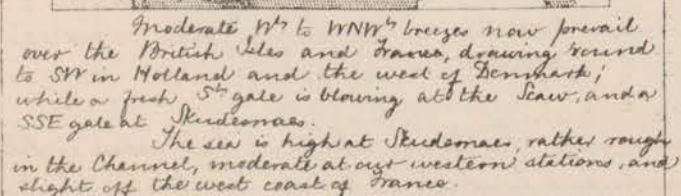 Moderate Wly to WNWly breezes now prevail
over the British Isles and France, drawing round
to SW in Holland and the west of Denmark;
while a fresh Sly gale is blowing at the Scaw, and a
SSE gale at Skudesnaes.
The sea is high at Skudesnaes, rather rough
in the Channel, moderate at our western stations, and
slight off the west coast of France.